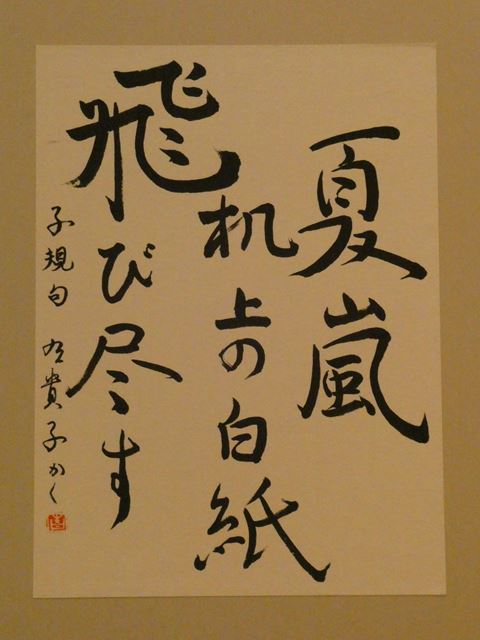 夏嵐
机上の白紙
飛び尽す
子規句 有貴子かく